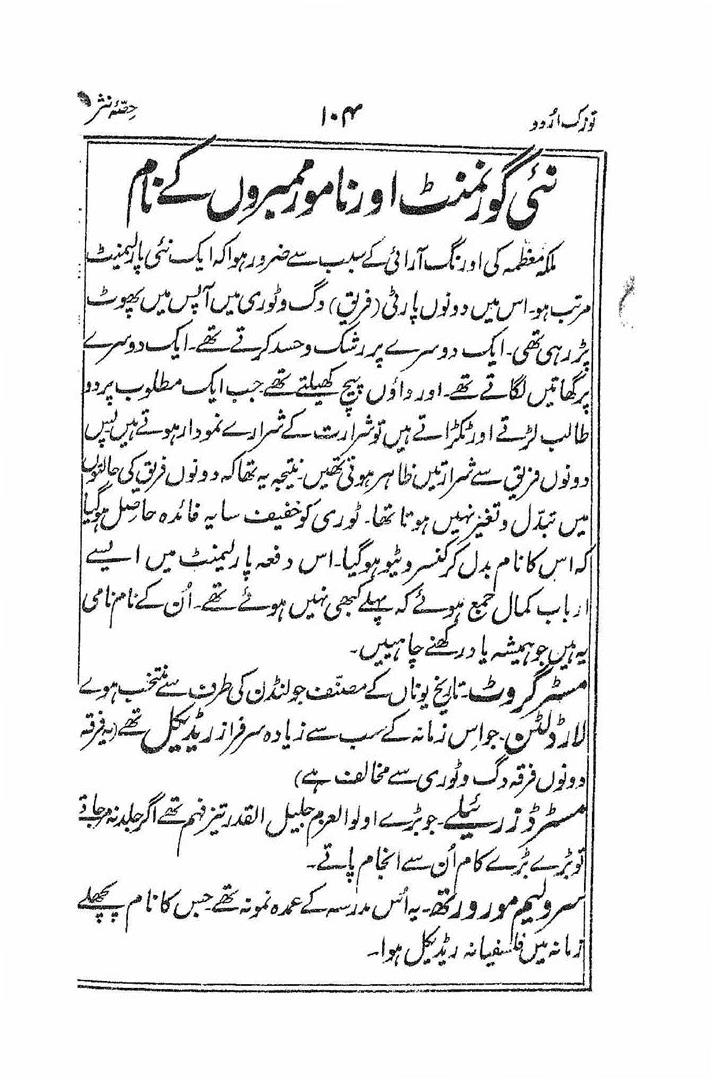 توزک اردو ۱۰۴ حصّۂ نثر
نئی گورنمنٹ اور نامور ممبروں کے نام
ملکہ معظمہ کی اورنگ آرائی کے سبب سے ضرور ہوا کہ ایک نئی پارلیمنٹ
مرتب ہو۔ اس میں دونوں پارٹی (فریق) وگ وٹوری میں آپس میں پھوٹ
پڑ رہی تھی۔ ایک دوسرے پر رشک وحسد کرتے تھے۔ ایک دوسرے
پر گھاتیں لگاتے تھے۔ اور داؤں پیچ کھیلتے تھے۔ جب ایک مطلوب پر دو
طالب لڑتے اور ٹکراتے ہیں تو شرارت کے شرارے نمودار ہوتے ہیں پس
دونوں فریق سے شرارتیں ظاہر ہوتی تھیں۔ نتیجہ یہ تھا کہ دونوں فریق کی حالتوں
میں تبدّل وتغیر نہیں ہوتا تھا۔ ٹوری کو خفیف سا یہ فائدہ حاصل ہوگیا
کہ اس کا نام بدل کر کنسروٹیو ہوگیا۔ اس دفعہ پارلیمنٹ میں ایسے
ارباب کمال جمع ہوئے کہ پہلے کبھی نہیں ہوئے تھے۔ اُن کے نام نامی
یہ ہیں جو ہمیشہ یاد رکھنے چاہییں۔
مسٹر گروٹ۔ تاریخ یوناں کے مصنّف جو لنڈن کی طرف سے منتخب ہوے
لارڈ لٹن۔ جو اس زمانہ کے سب سے زیادہ سرفراز ریڈیکل تھے (یہ فرقہ
دونوں فرقہ وگ وٹوری سے مخالف ہے)
مسٹر ڈزرئیلے۔ جو بڑے اولوالعزم جلیل القدر تیز فہم تھے اگر جلد نہ مرجاتے
تو بڑے بڑے کام اُن سے انجام پاتے۔
سر ولیم مورورتھ۔ یہ اُس مدرسہ کے عمدہ نمونہ تھے۔ جس کا نام پچھلے
زمانہ میں فلسفیانہ ریڈیکل ہوا۔